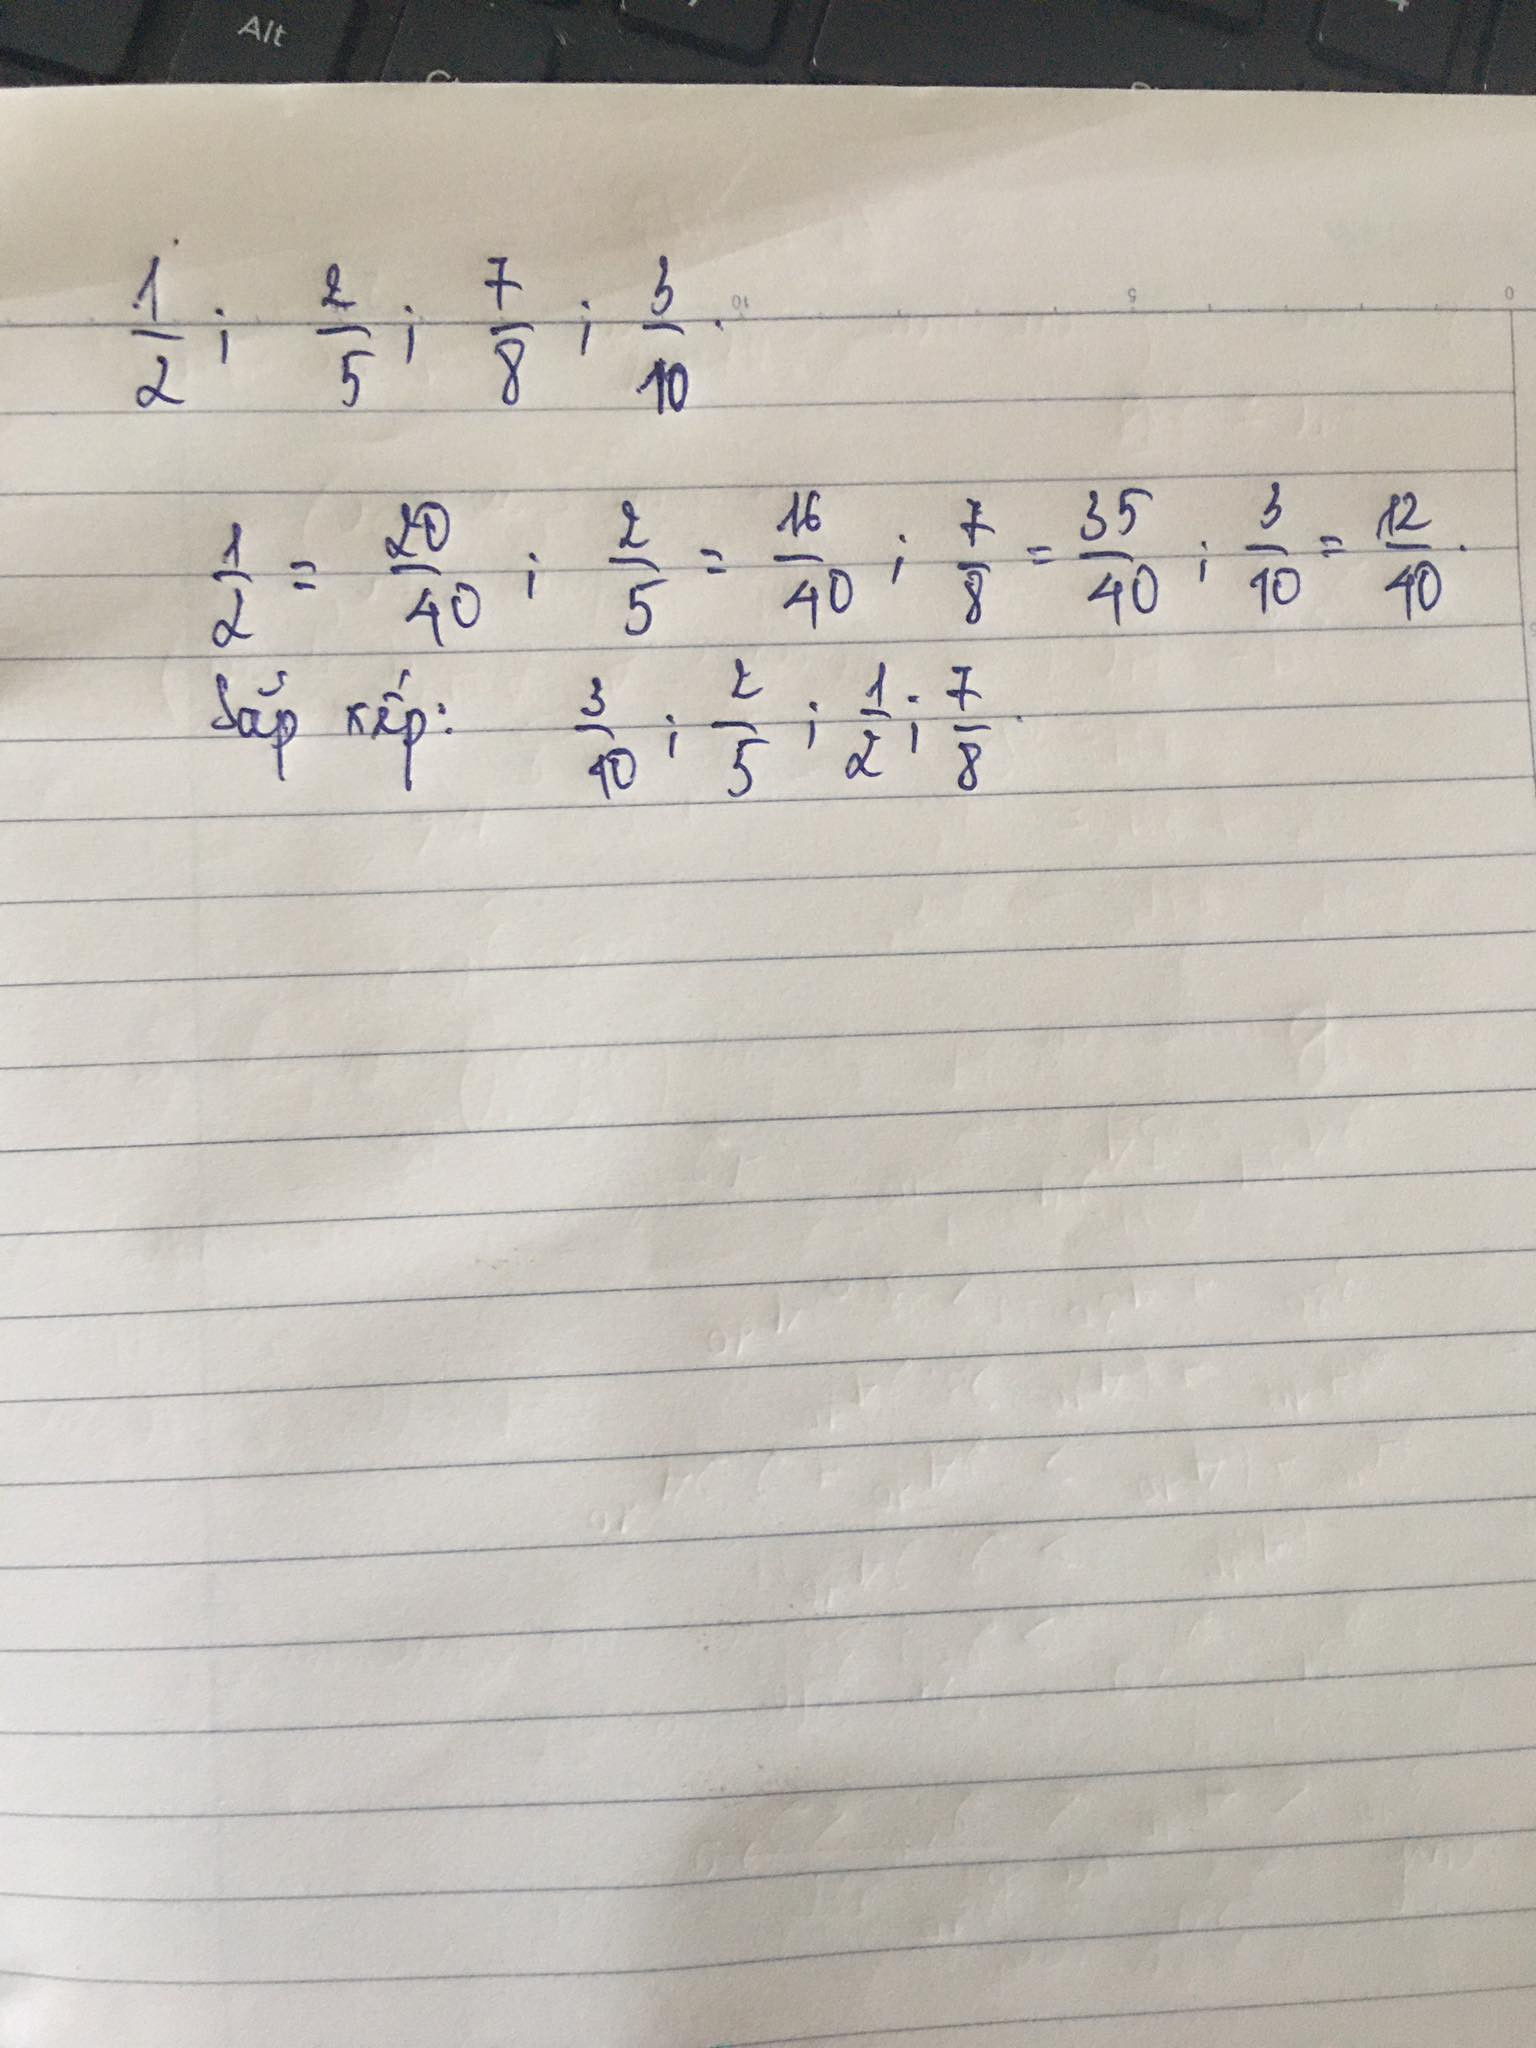 Alt
10 5 0
1/2 ; 2/5 ; 7/8 ; 3/10 .
1/2 = 20/40 ; 2/5 = 16/40 ; 7/8 = 35/40 ; 3/10 = 12/40 .
Sắp xếp: 3/10 ; 2/5 ; 1/2 ; 7/8 .